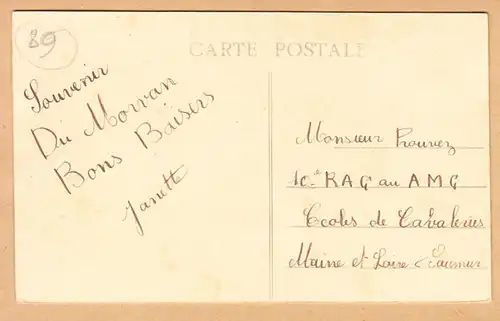 89
CARTE POSTALE
Souvenir
Du Morvan
Bons Baisers
Janette
Monsieur Prouvez
10e RAG au AMG
Ecoles de Cavaleries
Maine et Loire Saumur